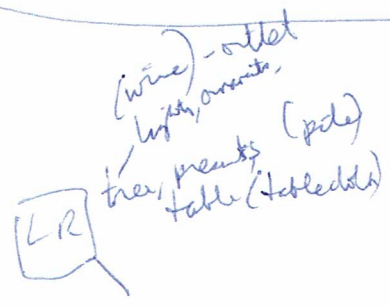 (wine) - outlet
lights, ornaments,
tree, presents (pile)
table (tablecloth)
LR